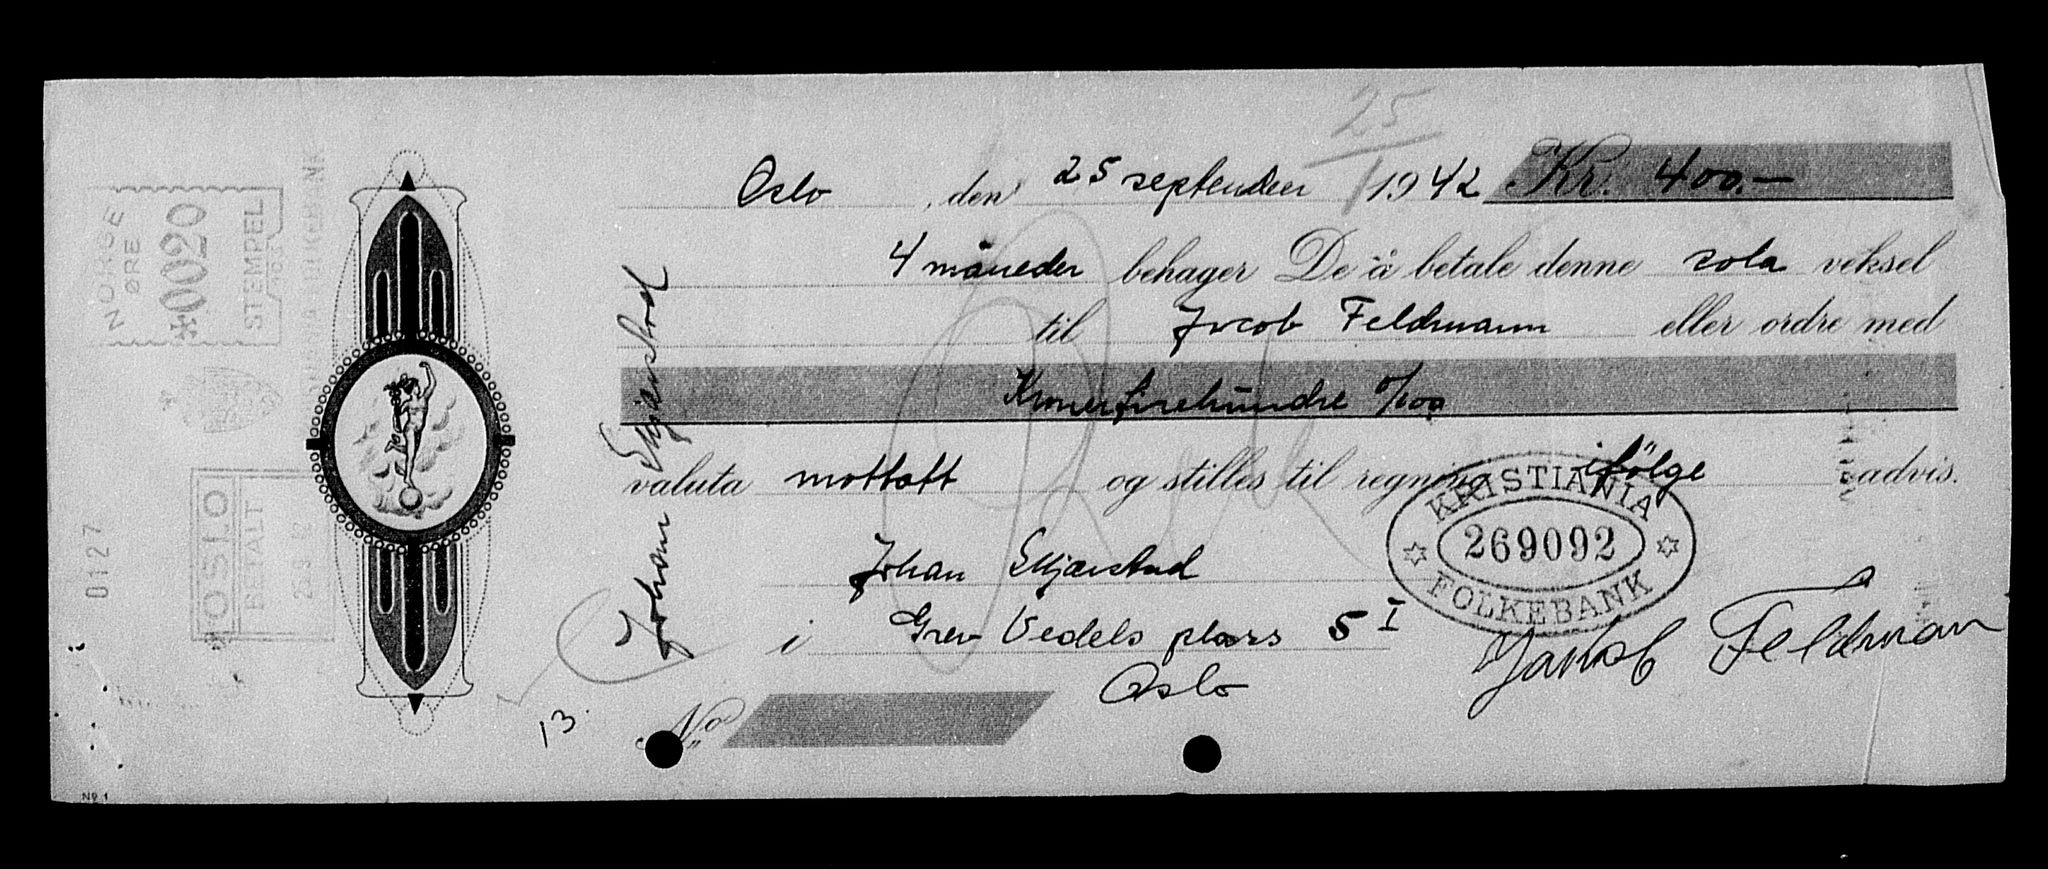 25/1
Oslo, den 25 september 1942 Kr. 400.—
4 måneder behager De å betale denne sola veksel
til Jacob Feldmann eller ordre med
Kroner firehundre 0/100
valuta mottatt og stilles til regning ifølge advis.
Johan Skjørstad
i Grev Vedels plass 5 I
Oslo
No
KRISTIANIA
269092
FOLKEBANK
Jakob Feldman
Johan
13.
NORGE
ØRE
*0020
STEMPEL
OSLO
BETALT
0127
No 1